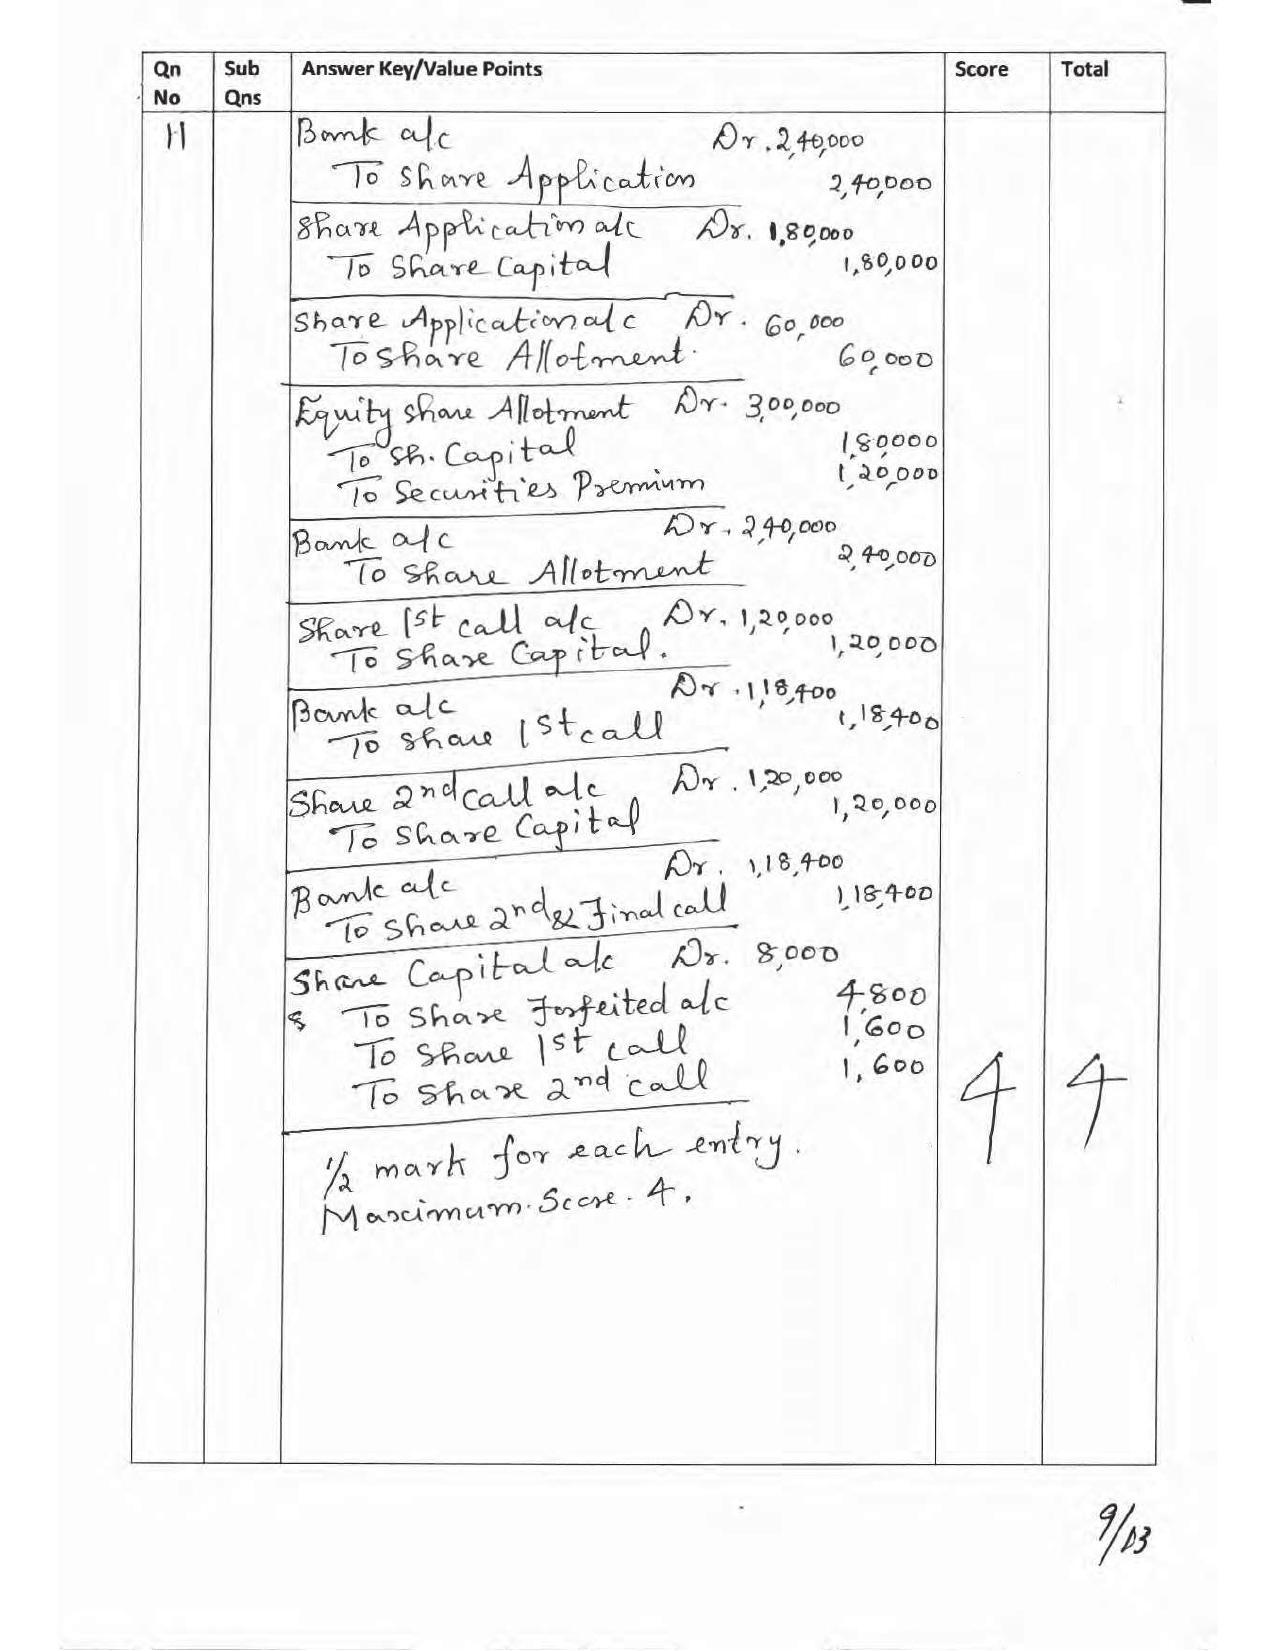 Qn No Sub Qns Answer Key/Value Points Score Total
11 Bank a/c Dr. 2,40,000
To Share Application 2,40,000
Share Application a/c Dr. 1,80,000
To Share Capital 1,80,000
Share Application a/c Dr. 60,000
To Share Allotment. 60,000
Equity share Allotment Dr. 3,00,000
To Sh. Capital 1,80000
To Securities Premium 1,20,000
Bank a/c Dr. 2,40,000
To Share Allotment 2,40,000
Share 1st call a/c Dr. 1,20,000
To Share Capital. 1,20,000
Bank a/c Dr. 1,18,400
To Share 1st call 1,18,400
Share 2nd call a/c Dr. 1,20,000
To Share Capital 1,20,000
Bank a/c Dr. 1,18,400
To Share 2nd & Final call 1,18,400
Share Capital a/c Dr. 8,000
To Share Forfeited a/c 4,800
To Share 1st call 1,600
To Share 2nd call 1,600
4 4
1/2 mark for each entry.
Maximum. Score. 4.
9/13